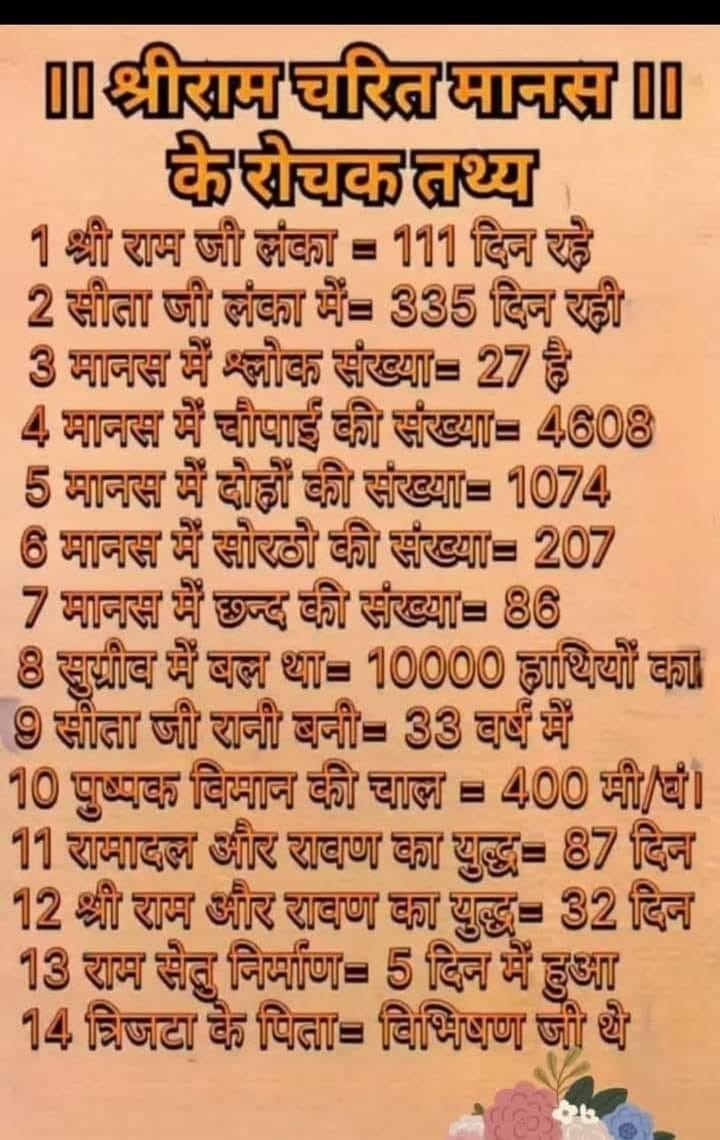 ॥ श्रीराम चरित मानस ॥
के रोचक तथ्य
1 श्री राम जी लंका = 111 दिन रहे
2 सीता जी लंका में= 335 दिन रही
3 मानस में श्लोक संख्या= 27 है
4 मानस में चौपाई की संख्या= 4608
5 मानस में दोहों की संख्या= 1074
6 मानस में सोरठो की संख्या= 207
7 मानस में छन्द की संख्या= 86
8 सुग्रीव में बल था= 10000 हाथियों का
9 सीता जी रानी बनी= 33 वर्ष में
10 पुष्पक विमान की चाल = 400 मी/घं।
11 रामादल और रावण का युद्ध= 87 दिन
12 श्री राम और रावण का युद्ध= 32 दिन
13 राम सेतु निर्माण= 5 दिन में हुआ
14 त्रिजटा के पिता= विभिषण जी थे